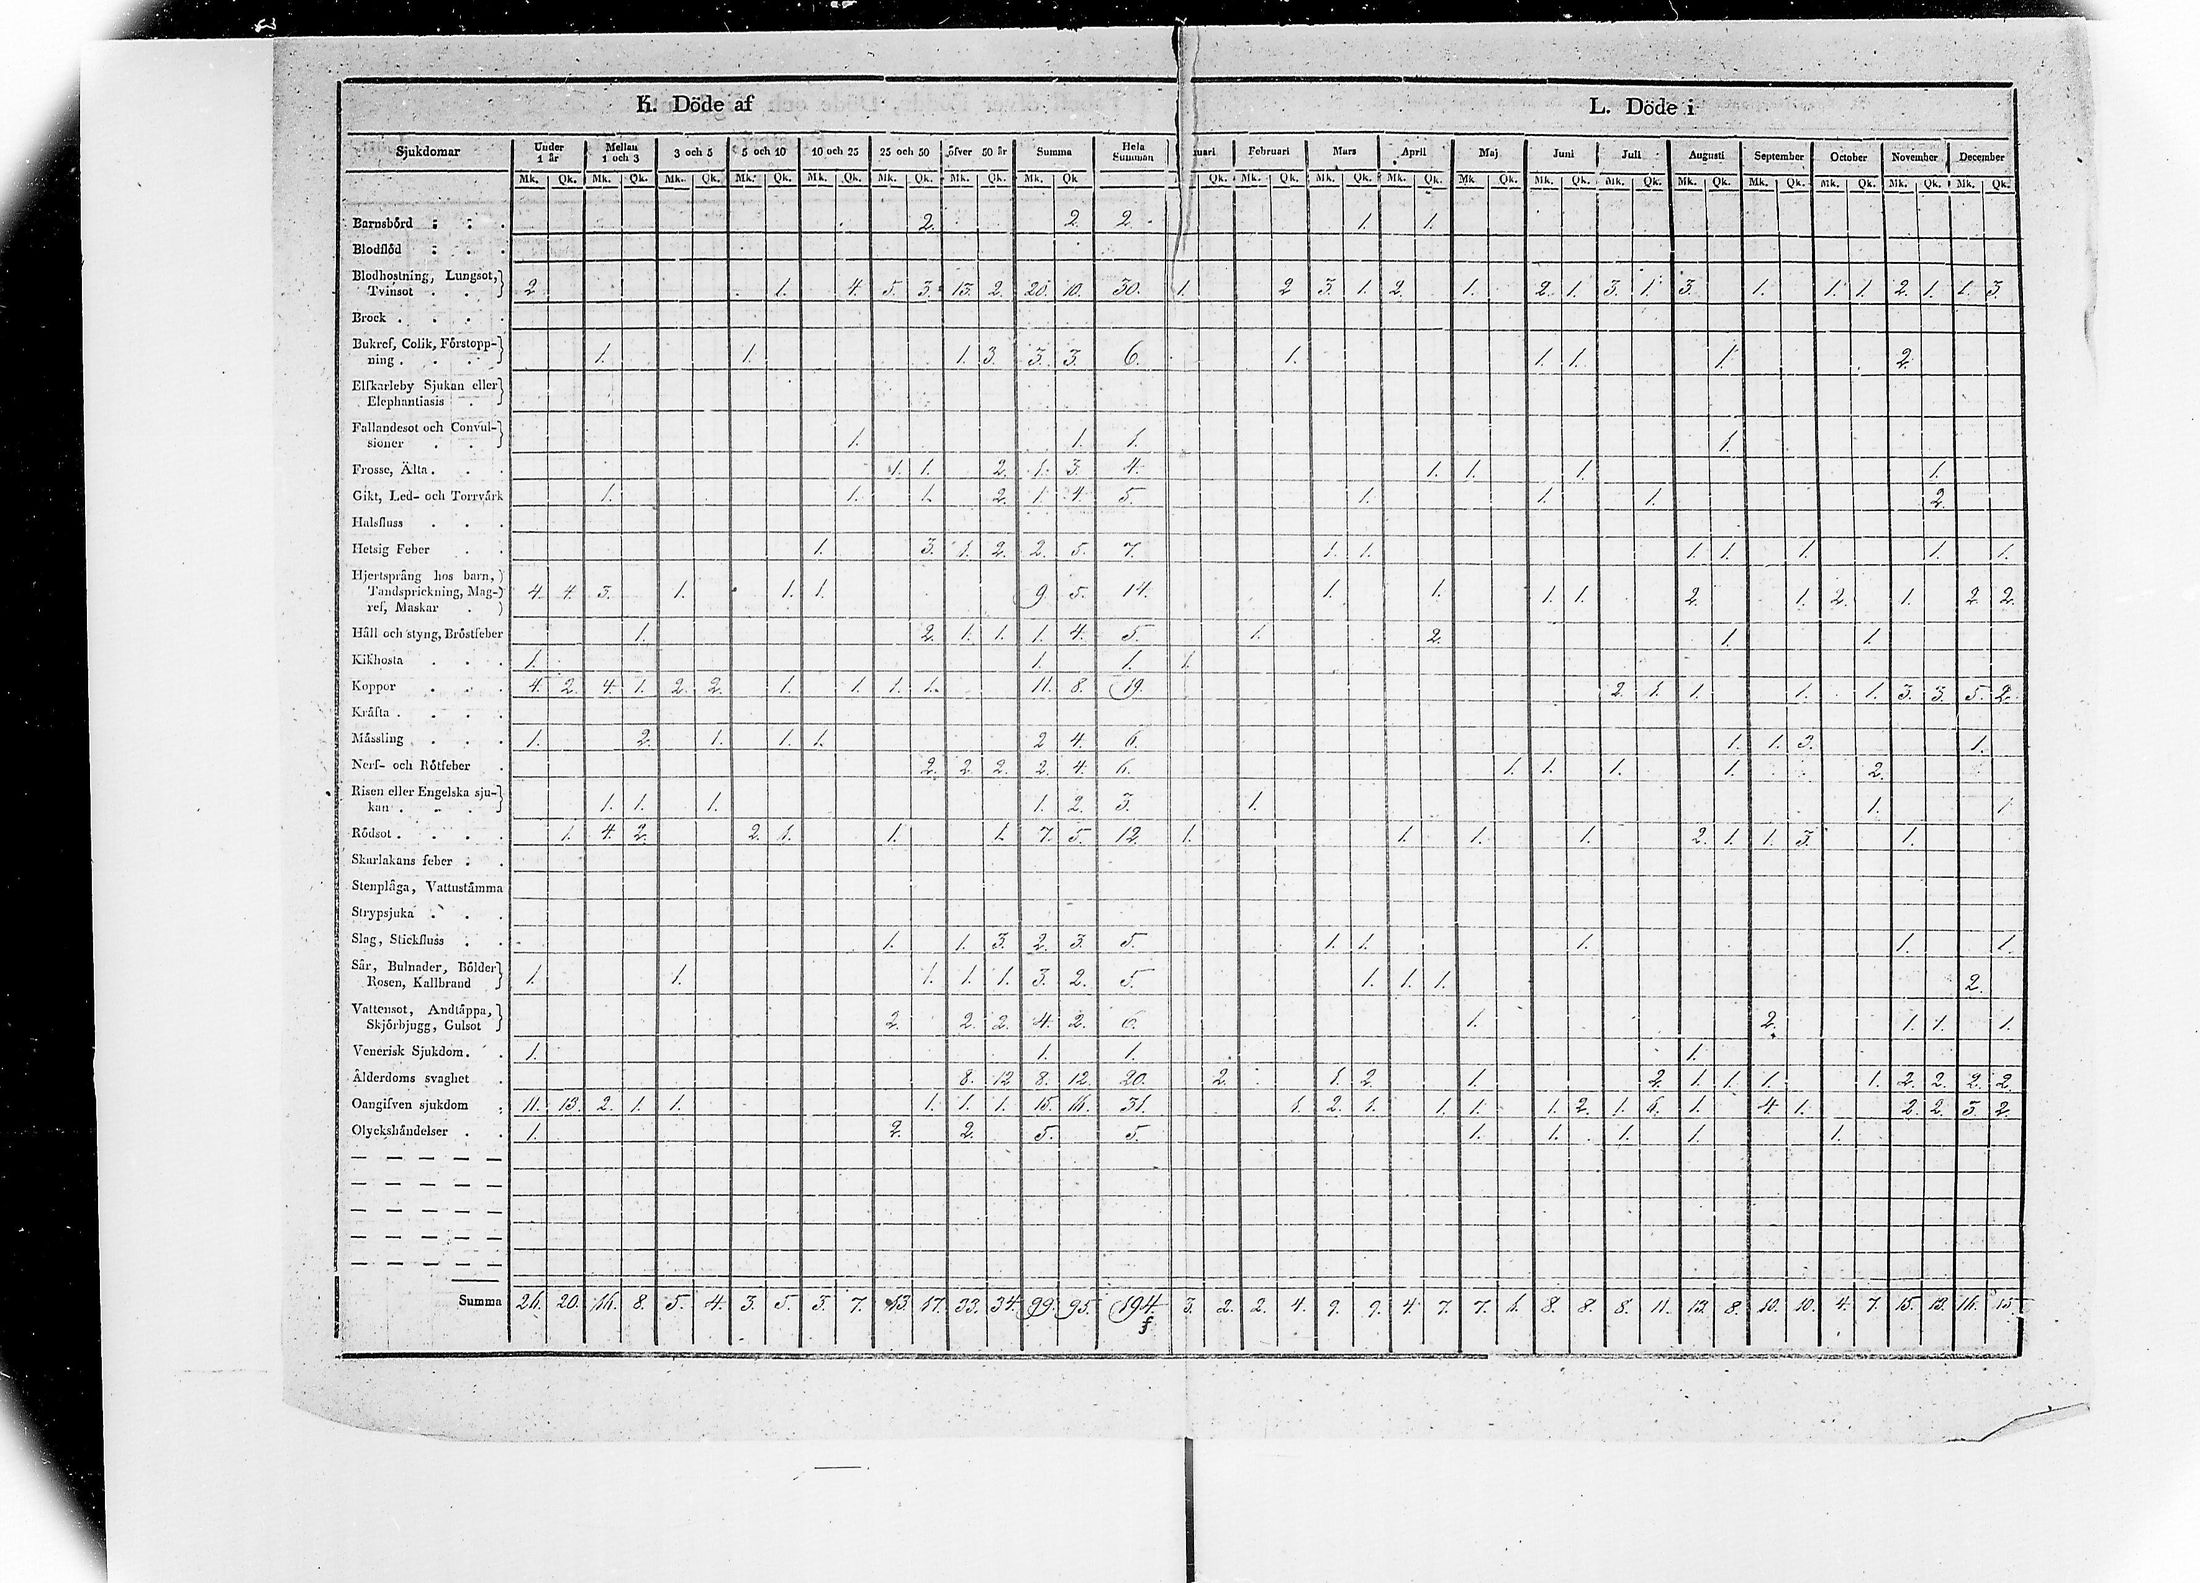 K. Döde af L. Döde i
Sjukdomar Under 1 år Mellan 1 och 3 3 och 5 5 och 10 10 och 25 25 och 50 öfver 50 år Summa Hela Summan uari Februari Mars April Maj Juni Juli Augusti September October November December
Mk. Qk. Mk. Qk. Mk. Qk. Mk. Qk. Mk. Qk. Mk. Qk. Mk. Qk. Mk. Qk Qk. Mk. Qk. Mk. Qk. Mk. Qk. Mk. Qk. Mk. Qk. Mk. Qk. Mk. Qk. Mk. Qk. Mk. Qk. Mk. Qk. Mk. Qk.
Barnsbörd 2. 2 2 1. 1.
Blodflöd
Blodhostning, Lungsot,
Tvinsot 2 1. 4. 5. 3. 13. 2. 20. 10. 30. 1. 2 3. 1. 2. 1. 2. 1. 3. 1. 3. 1. 1. 1. 2. 1. 1. 3.
Brock
Bukref, Colik, Förstopp-
ning 1. 1. 1. 3. 3. 3. 6. 1. 1. 1. 1. 2.
Elfkarleby Sjukan eller
Elephantiasis
Fallandesot och Convul-
sioner 1. 1. 1. 1.
Frosse, Älta 1. 1. 2. 1. 3. 4. 1. 1. 1. 1.
Gikt, Led- och Torrvärk 1. 1. 1. 2. 1. 4. 5. 1. 1. 1. 2.
Halsfluss
Hetsig Feber 1. 3. 1. 2. 2. 5. 7. 1. 1. 1. 1. 1. 1. 1.
Hjertsprång hos barn,
Tandsprickning, Mag-
ref, Maskar 4. 4. 3. 1. 1. 1. 9. 5. 14. 1. 1. 1. 1. 2. 1. 2. 1. 2. 2.
Håll och styng, Bröstfeber 1. 2. 1. 1. 1. 4. 5. 1. 2. 1. 1.
Kikhosta 1. 1. 1. 1.
Koppor 4. 2. 4. 1. 2. 2. 1. 1. 1. 1. 11. 8. 19. 2. 1. 1. 1. 1. 3. 3. 5. 2.
Kräfta
Mässling 1. 2. 1. 1. 1. 2 4. 6. 1. 1. 3. 1.
Nerf- och Rötfeber 2. 2. 2. 2. 4. 6. 1. 1. 1. 1. 2.
Risen eller Engelska sju-
kan 1. 1. 1. 1. 2. 3. 1. 1. 1.
Rödsot 1. 4. 2. 2. 1. 1. 1. 7. 5. 12. 1. 1. 1. 1. 2. 1. 1. 3. 1.
Skarlakans feber
Stenplåga, Vattustämma
Strypsjuka
Slag, Stickfluss 1. 1. 3. 2. 3. 5. 1. 1. 1. 1. 1.
Sår, Bulnader, Bölder
Rosen, Kallbrand 1. 1. 1. 1. 1. 3. 2. 5. 1. 1. 1. 2.
Vattensot, Andtäppa,
Skjörbjugg, Gulsot 2. 2. 2. 4. 2. 6. 1. 2. 1. 1. 1.
Venerisk Sjukdom 1. 1. 1. 1.
Ålderdoms svaghet 8. 12 8. 12. 20. 2. 1. 2. 1. 2. 1. 1. 1. 1. 2. 2. 2. 2.
Oangifven sjukdom 11. 13. 2. 1. 1. 1. 1. 1. 15. 16. 31. 1. 2. 1. 1. 1. 1. 2. 1. 6. 1. 4. 1. 2. 2. 3. 2.
Olyckshändelser 1. 2. 2. 5. 5. 1. 1. 1. 1. 1.
Summa 26. 20. 16. 8. 5. 4. 3. 5. 3. 7. 13. 17. 33. 34. 99. 95. 194. 3. 2. 2. 4. 9. 9. 4. 7. 7. 1. 8. 8. 8. 11. 12. 8. 10. 10. 4. 7. 15. 13. 16. 15.